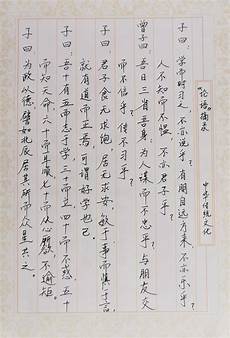 "论语"摘录
中华传统文化
子曰：学而时习之，不亦说乎？有朋自远方来，不亦乐乎？
人不知而不愠，不亦君子乎？
曾子曰：吾日三省吾身：为人谋而不忠乎？与朋友交
而不信乎？传不习乎？
子曰：君子食无求饱，居无求安，敏于事而慎于言，
就有道而正焉，可谓好学也已。
子曰：吾十有五而志于学，三十而立，四十而不惑，五十
而知天命，六十而耳顺，七十而从心所欲，不逾矩。
子曰：为政以德，譬如北辰，居其所而众星共之。